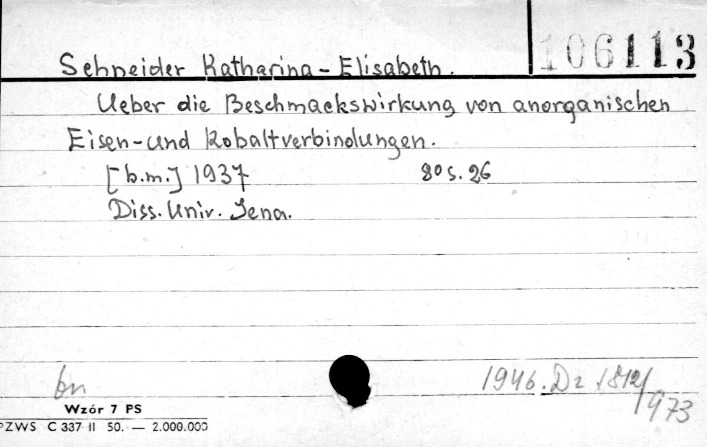 106113
Schneider Katharina - Elisabeth.
Ueber die Beschmackswirkung von anorganischen
Eisen- und Kobaltverbindungen.
[b.m.] 1937 8° s. 26
Diss. Univ. Jena.
bn 1946. Dz 1812/
1973
Wzór 7 PS
PZWS C 337 II 50. — 2.000.000